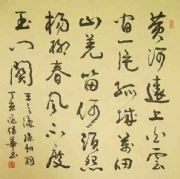 黄河遠上白雲
間一片孤城萬仞
山羌笛何須怨
楊柳春風不度
玉門關
王之渙涼州詞
丁亥
書